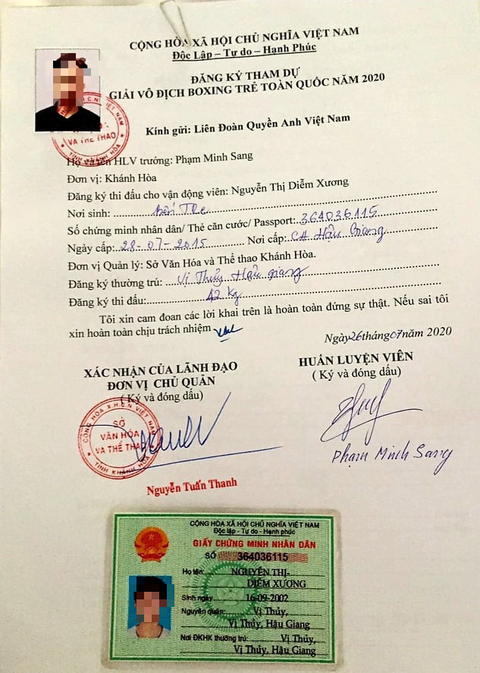 CỘNG HÒA XÃ HỘI CHỦ NGHĨA VIỆT NAM
Độc Lập – Tự do – Hạnh Phúc
ĐĂNG KÝ THAM DỰ
GIẢI VÔ ĐỊCH BOXING TRẺ TOÀN QUỐC NĂM 2020
VÀ THỂ THAO
Kính gửi: Liên Đoàn Quyền Anh Việt Nam
Họ và tên HLV trưởng: Phạm Minh Sang
Đơn vị: Khánh Hòa
Đăng ký thi đấu cho vận động viên: Nguyễn Thị Diễm Xương
Nơi sinh: Bến Tre
Số chứng minh nhân dân/ Thẻ căn cước/ Passport: 364036115
Ngày cấp: 28-07-2015 Nơi cấp: CA Hậu Giang
Đơn vị Quản lý: Sở Văn Hóa và Thể thao Khánh Hòa.
Đăng ký thường trú: Vị Thủy Hậu giang
Đăng ký thi đấu: 42 kg
Tôi xin cam đoan các lời khai trên là hoàn toàn đứng sự thật. Nếu sai tôi
xin hoàn toàn chịu trách nhiệm
Ngày 26 tháng 07 năm 2020
XÁC NHẬN CỦA LÃNH ĐẠO
ĐƠN VỊ CHỦ QUẢN
(Ký và đóng dấu)
HUẤN LUYỆN VIÊN
( Ký và đóng dấu)
CỘNG HÒA X.H.C.N VIỆT NAM
SỞ
VĂN HÓA
VÀ THỂ THAO
TỈNH KHÁNH HÒA
Phạm Minh Sang
Nguyễn Tuấn Thanh
CỘNG HÒA XÃ HỘI CHỦ NGHĨA VIỆT NAM
Độc lập - Tự do - Hạnh phúc
GIẤY CHỨNG MINH NHÂN DÂN
SỐ 364036115
Họ tên: NGUYỄN THỊ
DIỄM XƯƠNG
Sinh ngày 16-09-2002
Nguyên quán: Vị Thủy,
Vị Thủy, Hậu Giang
Nơi ĐKHK thường trú: Vị Thủy,
Vị Thủy, Hậu Giang